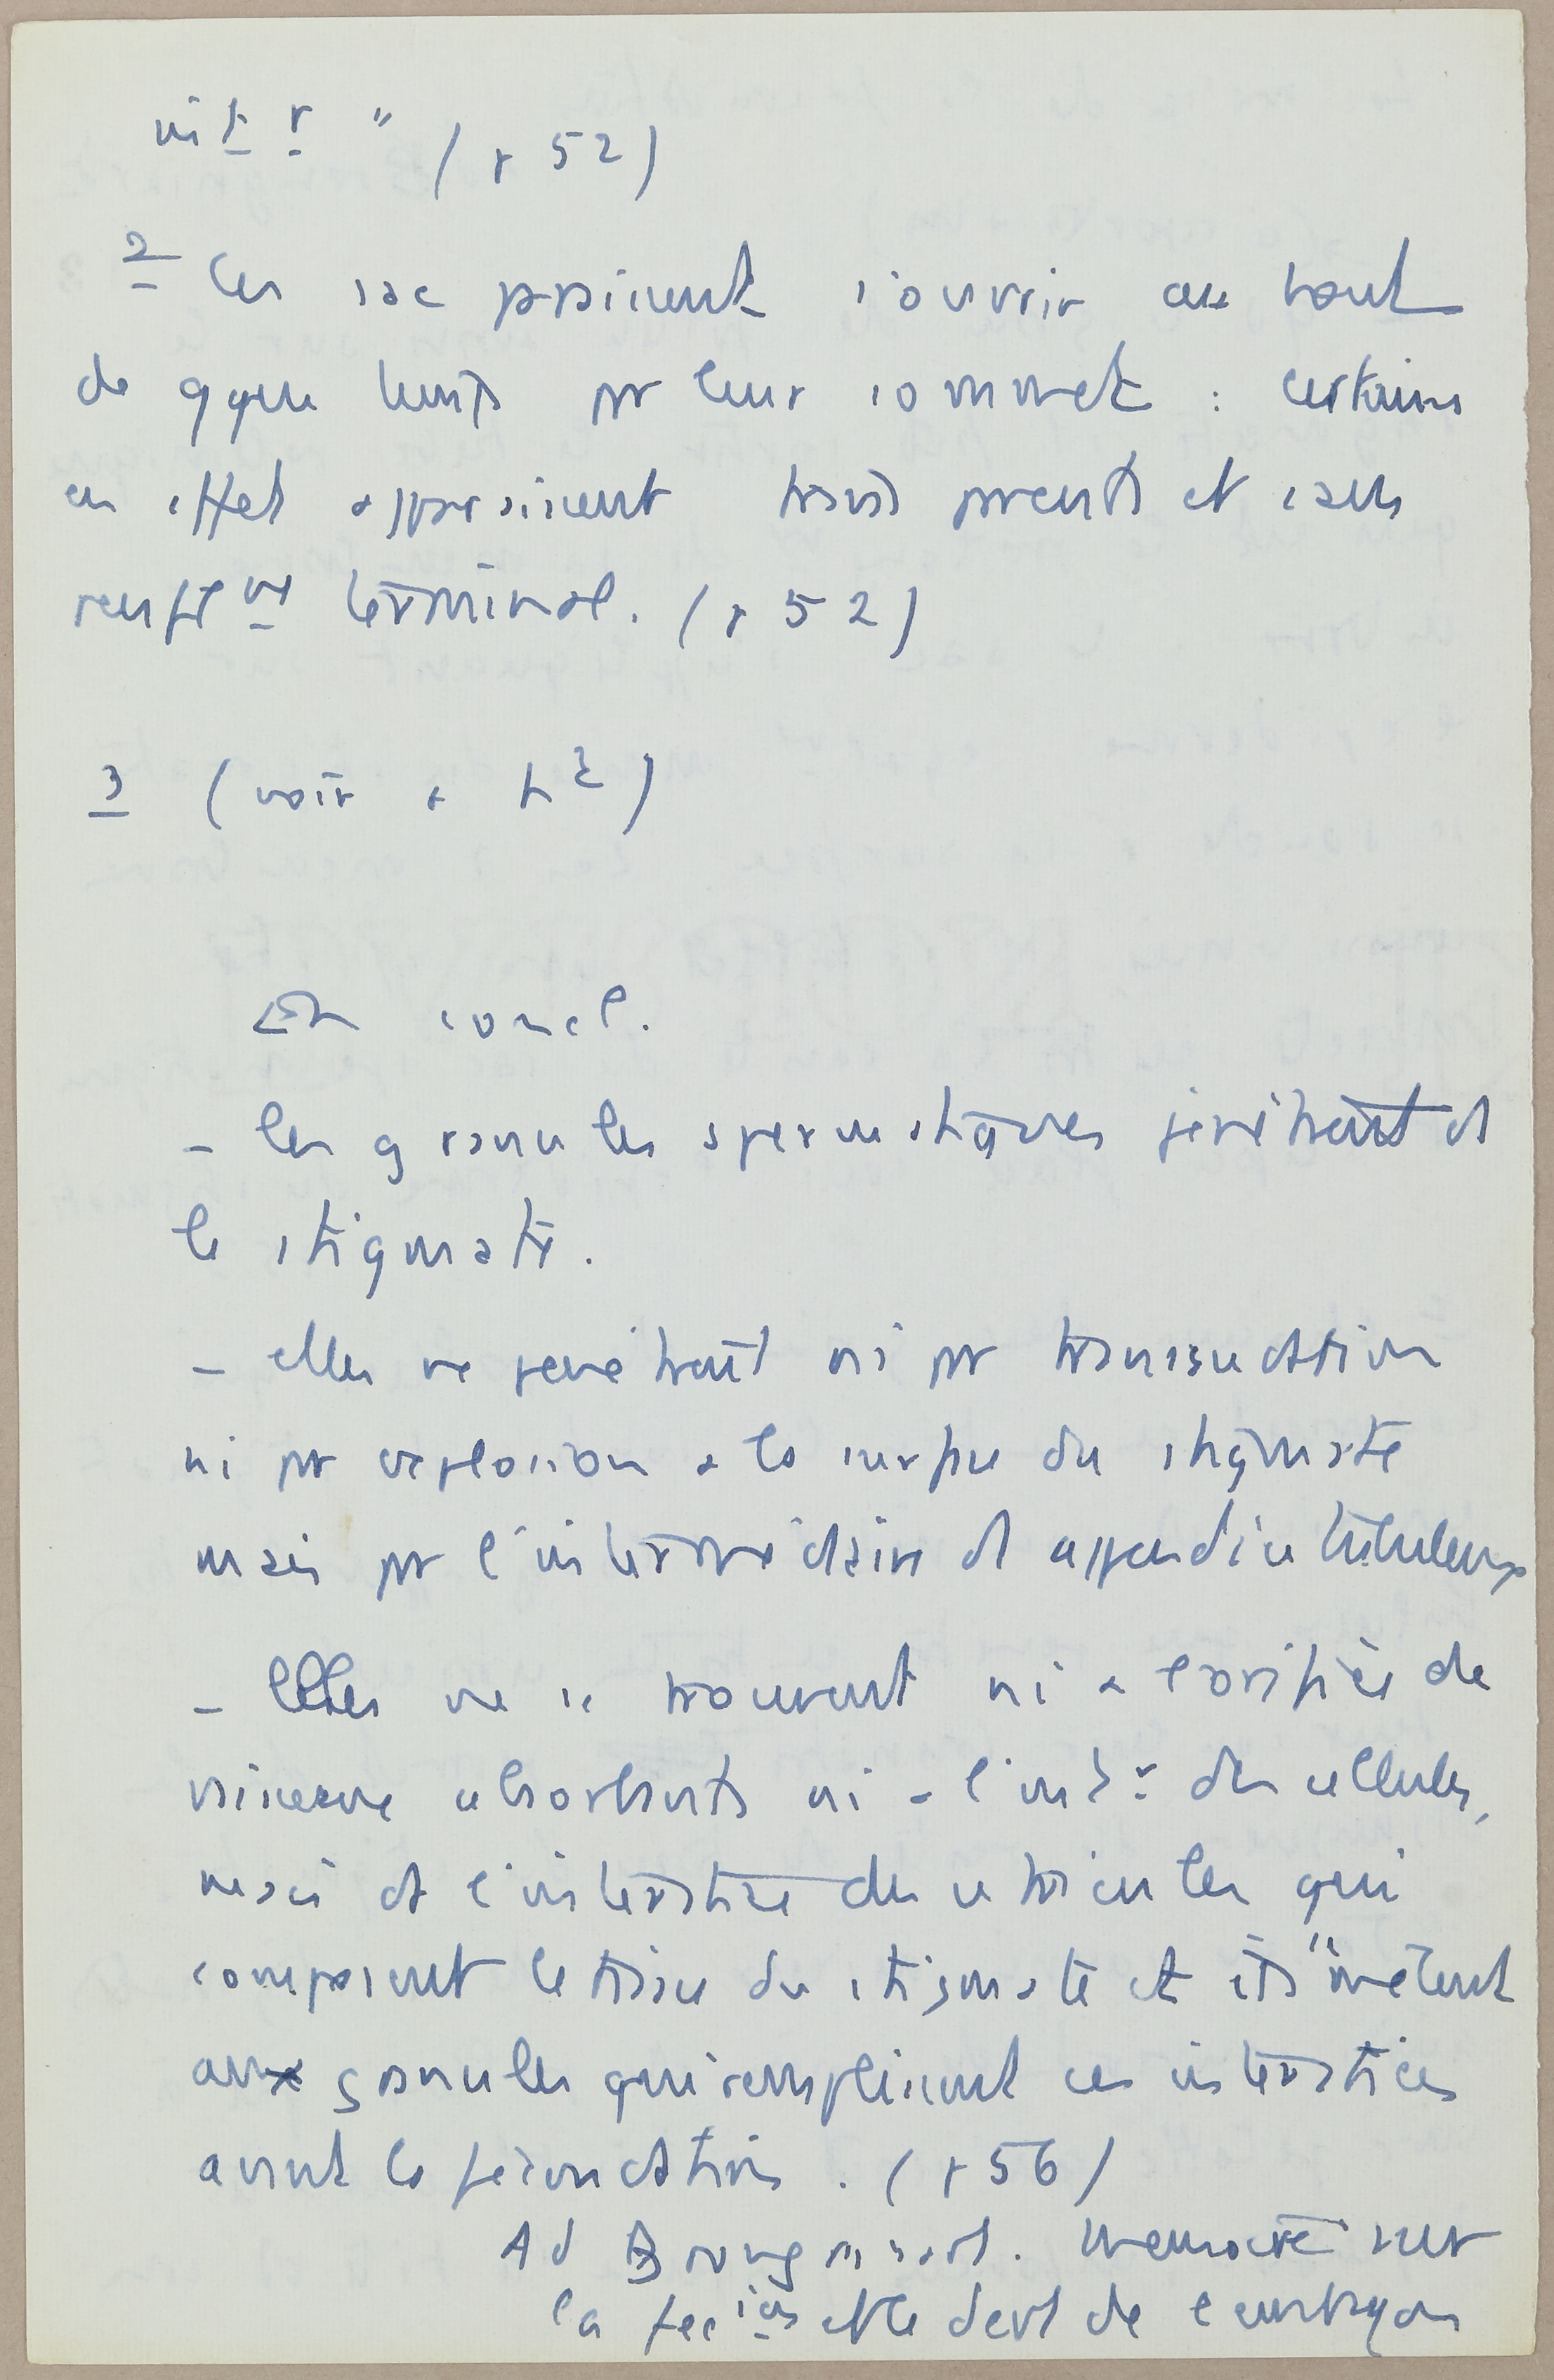 " (p 52)
2 Ces sac paraissent s'ouvrir au bout
de qque temps par leur sommet : certains
en effet apparaissent transparents et sans
renflt terminal. (p 52)
3 (voir à h2)
En concl.
- les granules spermatiques pénètrent ds
le stigmate.
- elles ne pénètrent ni par transsudation
ni par explosion à la surface du stigmate
mais par l'intermédiaire d'appendice tubuleux
- Elles ne se trouvent ni à l'orifice de
vaisseaux absorbants ni à l'intr des cellules,
mais ds l'interstice des utricules qui
composent le tissu du stigmate et se mêlent
aux granules qui remplissent ces interstices
avant la fécondation. (p 56)
Ad Brongniart. Memoire sur
la fecion et le devt de l'embryon